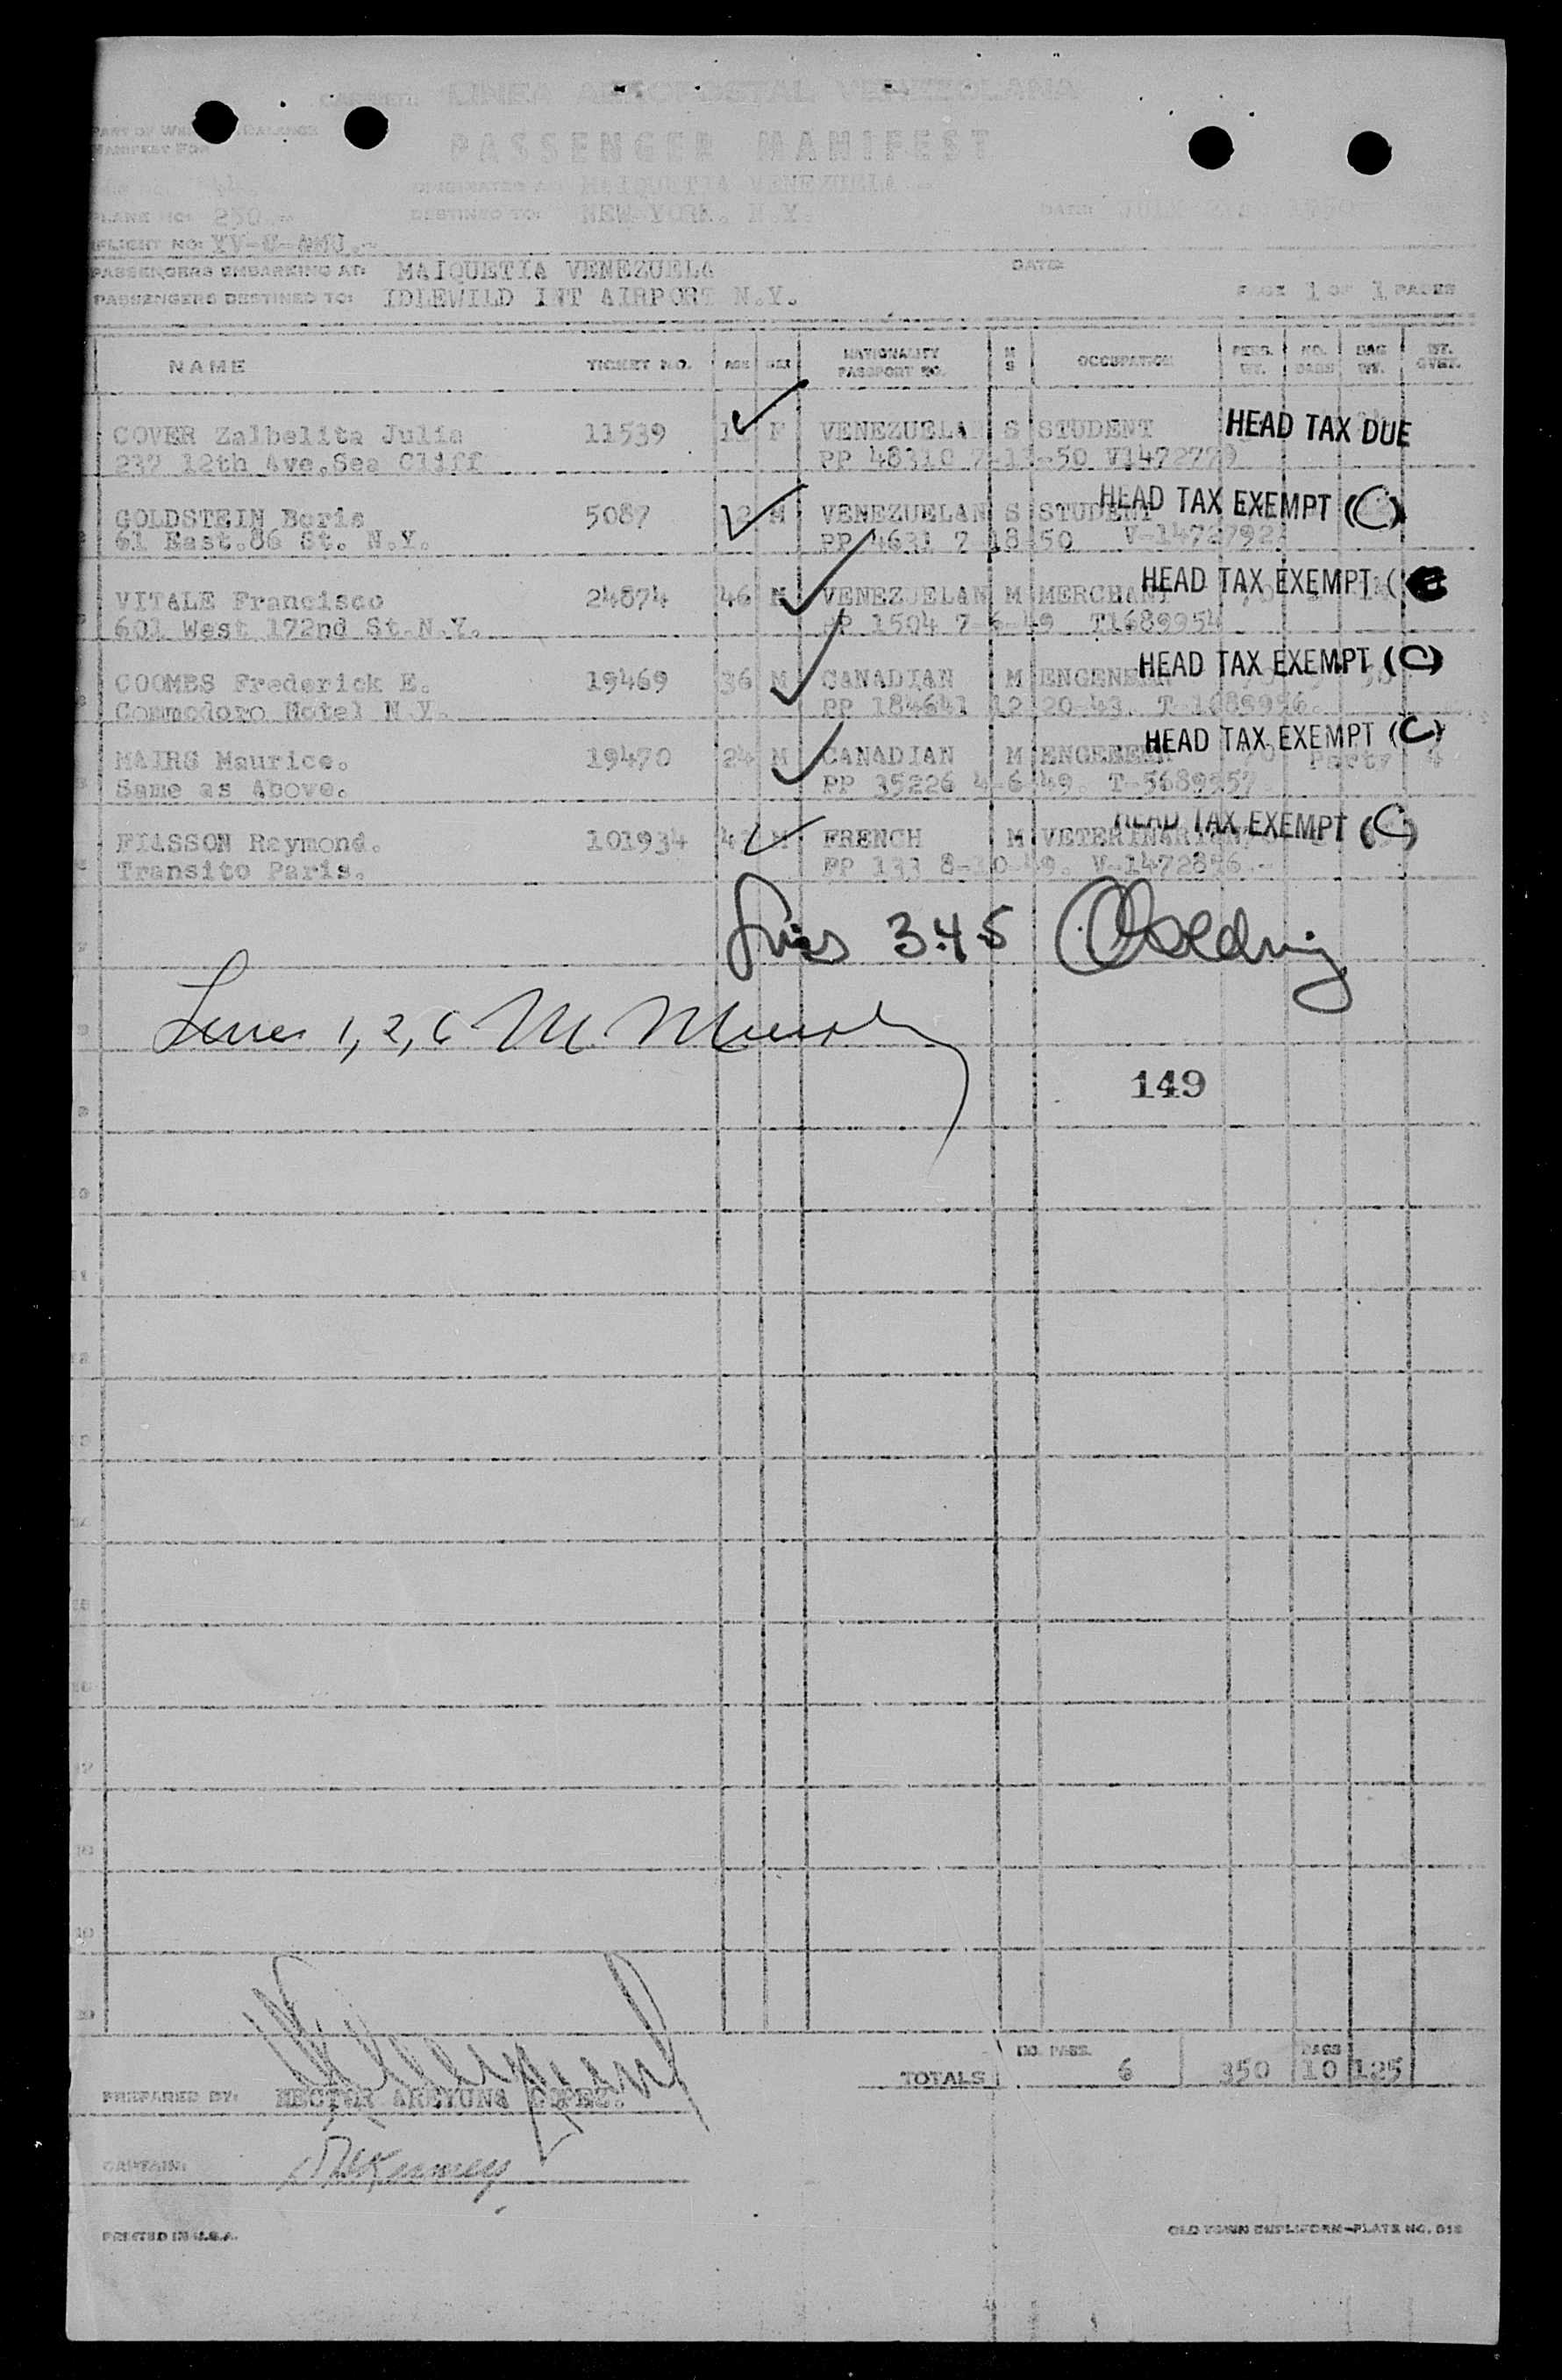 CARRIER: LINEA AEROPOSTAL VENEZOLANA
PART OF WEIGHT BALANCE
MANIFEST FOR
PASSENGER MANIFEST
ORIGINATED AT: MAIQUETIA VENEZUELA.-
PLANE NO: 250.-
DESTINED TO: NEW YORK. N.Y.
DATE: JULY
FLIGHT NO: YV-C-AMU.-
PASSENGERS EMBARKING AT: MAIQUETIA VENEZUELA
DATE:
PASSENGERS DESTINED TO: IDLEWILD INT AIRPORT N.Y.
PAGE 1 OF 1 PAGES
NAME TICKET NO. AGE SEX NATIONALITY PASSPORT NO. M S OCCUPATION PERS. WT. NO. BAGS BAG WT. WT. OVER.
COVER Zalbelita Julia 11539 F VENEZUELAN S STUDENT HEAD TAX DUE
237 12th Ave.Sea Cliff PP 48310 7-13-50 V1472779
GOLDSTEIN Boris 5087 M VENEZUELAN S STUDENT HEAD TAX EXEMPT (C)
61 East.86 St. N.Y. PP 4631 7 18 50 V-1472792
VITALE Francisco 24874 46 M VENEZUELAN M MERCHANT HEAD TAX EXEMPT (
601 West 172nd St.N.Y. PP 1504 7-6-49 T1689954
COOMBS Frederick E. 19469 36 M CANADIAN M ENGENEER HEAD TAX EXEMPT (C)
Commodoro Hotel N.Y. PP 184641 12-20-43. T-1689956.
MAIRS Maurice. 19470 24 M CANADIAN M ENGENEER HEAD TAX EXEMPT (C)
70 Party 4
Same as Above. PP 35226 4-6-49. T-5689957
FIASSON Raymond. 101934 M FRENCH M VETERINARIAN HEAD TAX EXEMPT (C)
Transito Paris. PP 133 8-30-49. V-1472856.-
Lines 3.4.5
Lines 1, 2, 6 M Murphy
149
TOTALS NO. PASS. 6 350 BAGS 10 125
PREPARED BY: HECTOR AREYUNA LOPEZ.
CAPTAIN:
PRINTED IN U.S.A.
OLD TOWN DUPLIFORM-PLATE NO. 018